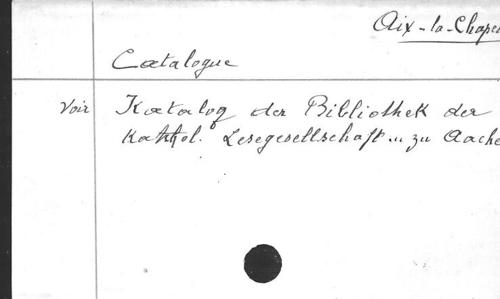 Aix-la-Chape
Catalogue
Voir Katalog der Bibliothek der
Kathol. Lesegesellschaft ... zu Aache